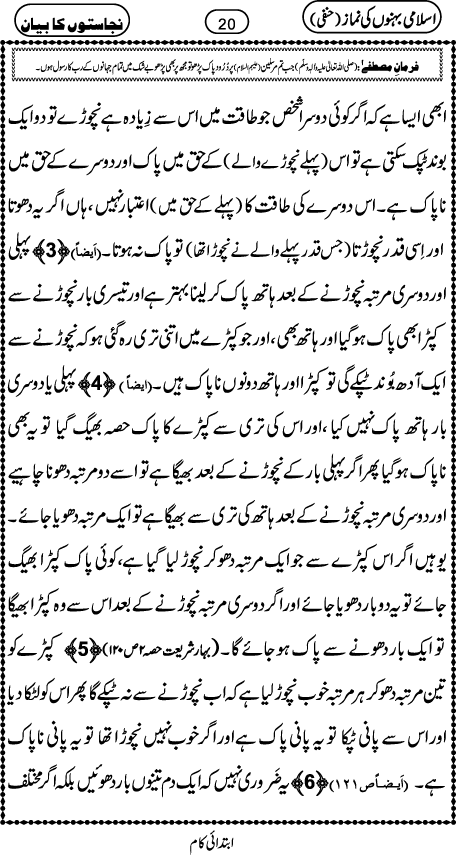 اسلامی بہنوں کی نماز (حنفی)
20
نجاستوں کا بیان
فرمانِ مصطفٰے: (صلی اللہ تعالیٰ علیہ واٰلہٖ وسلّم) جب تم مرسلین (علیہم السلام) پر دُرُود پاک پڑھو تو مجھ پر بھی پڑھو بے شک میں تمام جہانوں کے رب کا رسول ہوں۔
ابھی ایسا ہے کہ اگر کوئی دوسرا شخص جو طاقت میں اس سے زِیادہ ہے نچوڑے تو دو ایک
بوند ٹپک سکتی ہے تو اس (پہلے نچوڑے والے) کے حق میں پاک اور دوسرے کے حق میں
ناپاک ہے۔ اس دوسرے کی طاقت کا (پہلے کے حق میں) اعتبار نہیں، ہاں اگر یہ دھوتا
اور اِسی قدر نچوڑتا (جس قدر پہلے والے نے نچوڑا تھا) تو پاک نہ ہوتا۔ (اَیضاً) ﴿3﴾ پہلی
اور دوسری مرتبہ نچوڑنے کے بعد ہاتھ پاک کر لینا بہتر ہے اور تیسری بار نچوڑنے سے
کپڑا بھی پاک ہو گیا اور ہاتھ بھی، اور جو کپڑے میں اتنی تری رہ گئی ہو کہ نچوڑنے سے
ایک آدھ بُوند ٹپکے گی تو کپڑا اور ہاتھ دونوں ناپاک ہیں۔ (ایضاً) ﴿4﴾ پہلی یا دوسری
بار ہاتھ پاک نہیں کیا، اور اس کی تری سے کپڑے کا پاک حصہ بھیگ گیا تو یہ بھی
ناپاک ہو گیا پھر اگر پہلی بار کے نچوڑنے کے بعد بھیگا ہے تو اسے دو مرتبہ دھونا چاہیے
اور دوسری مرتبہ نچوڑنے کے بعد ہاتھ کی تری سے بھیگا ہے تو ایک مرتبہ دھویا جائے۔
یوہیں اگر اس کپڑے سے جو ایک مرتبہ دھو کر نچوڑ لیا گیا ہے، کوئی پاک کپڑا بھیگ
جائے تو یہ دو بار دھویا جائے اور اگر دوسری مرتبہ نچوڑنے کے بعد اس سے وہ کپڑا بھیگا
تو ایک بار دھونے سے پاک ہو جائے گا۔ (بہار شریعت حصہ ۲ ص ۱۲۰) ﴿5﴾ کپڑے کو
تین مرتبہ دھو کر ہر مرتبہ خوب نچوڑ لیا ہے کہ اب نچوڑنے سے نہ ٹپکے گا پھر اس کو لٹکا دیا
اور اس سے پانی ٹپکا تو یہ پانی پاک ہے اور اگر خوب نہیں نچوڑا تھا تو یہ پانی ناپاک
ہے۔ (اَیضاً ص ۱۲۱) ﴿6﴾ یہ ضَروری نہیں کہ ایک دم تینوں بار دھوئیں بلکہ اگر مختلف
ابتدائی کام